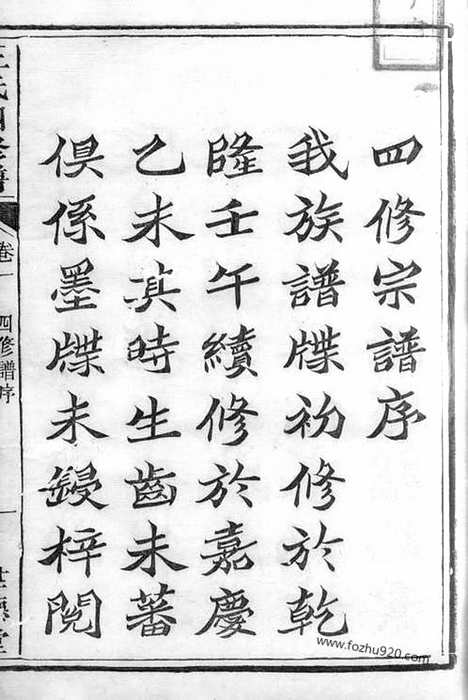 四修宗譜序
我族譜牒初修於乾
隆壬午續修於嘉慶
乙未其時生齒未蕃
俱係墨牒未鋟梓閱
卷一
四修譜序
一
www.fozhu920.com